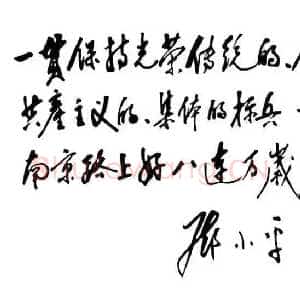 一贯保持光荣传统的、
共产主义的、集体的标兵
南京路上好八连万岁
邓小平